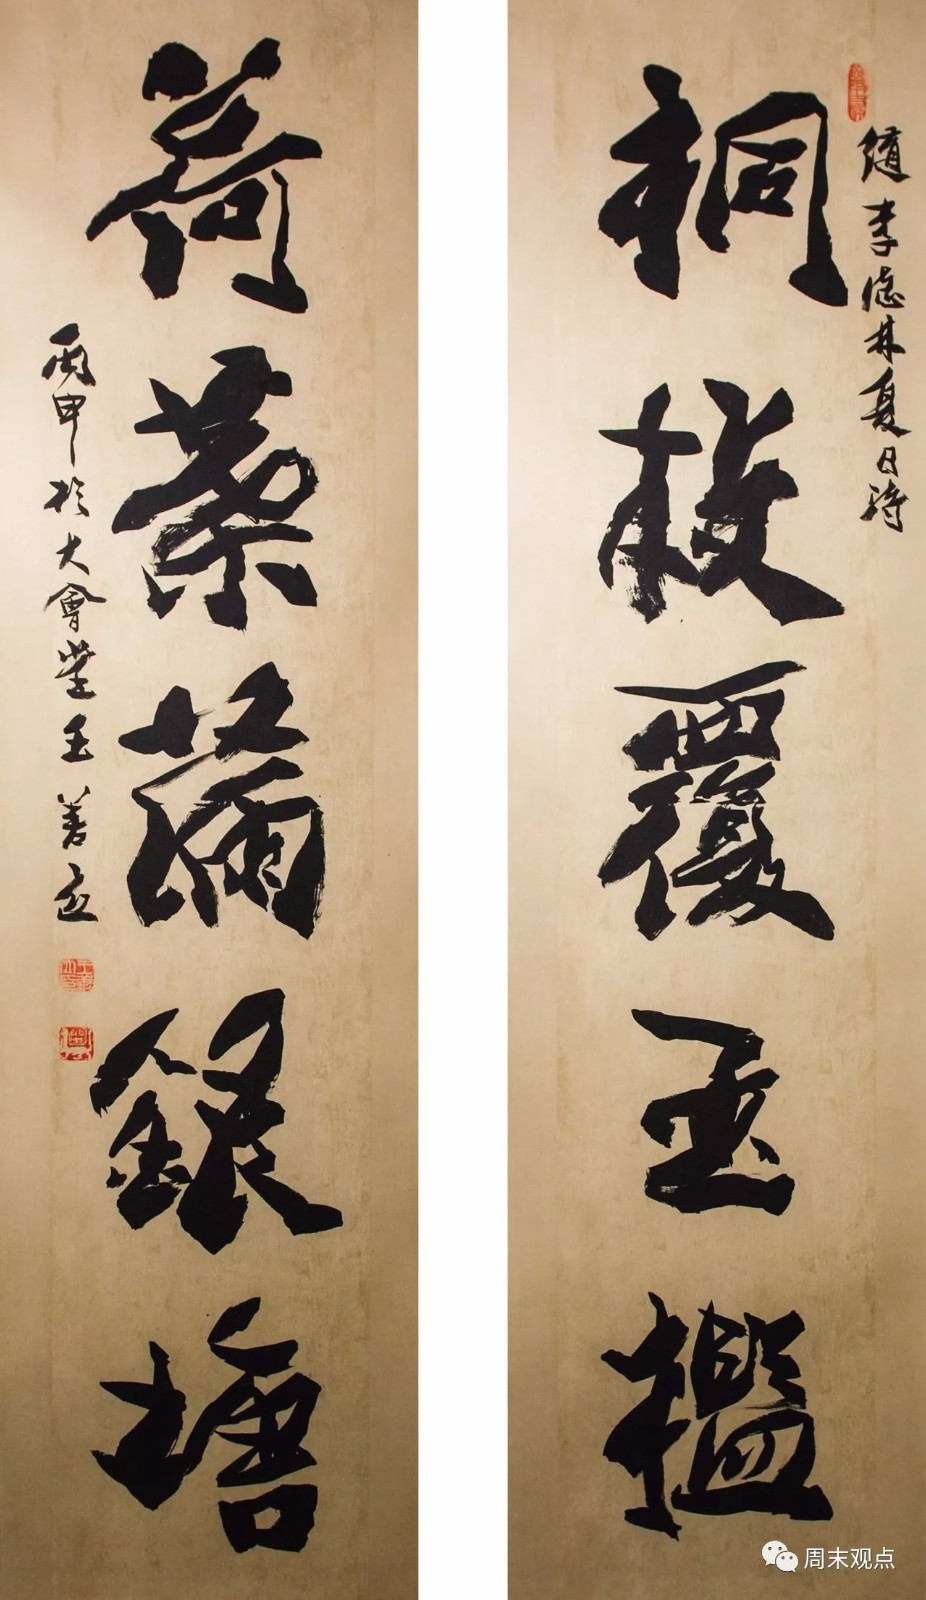 隋李德林夏日詩
桐枝覆玉檻
荷葉滿銀塘
丙申於大會堂王善
周末观点